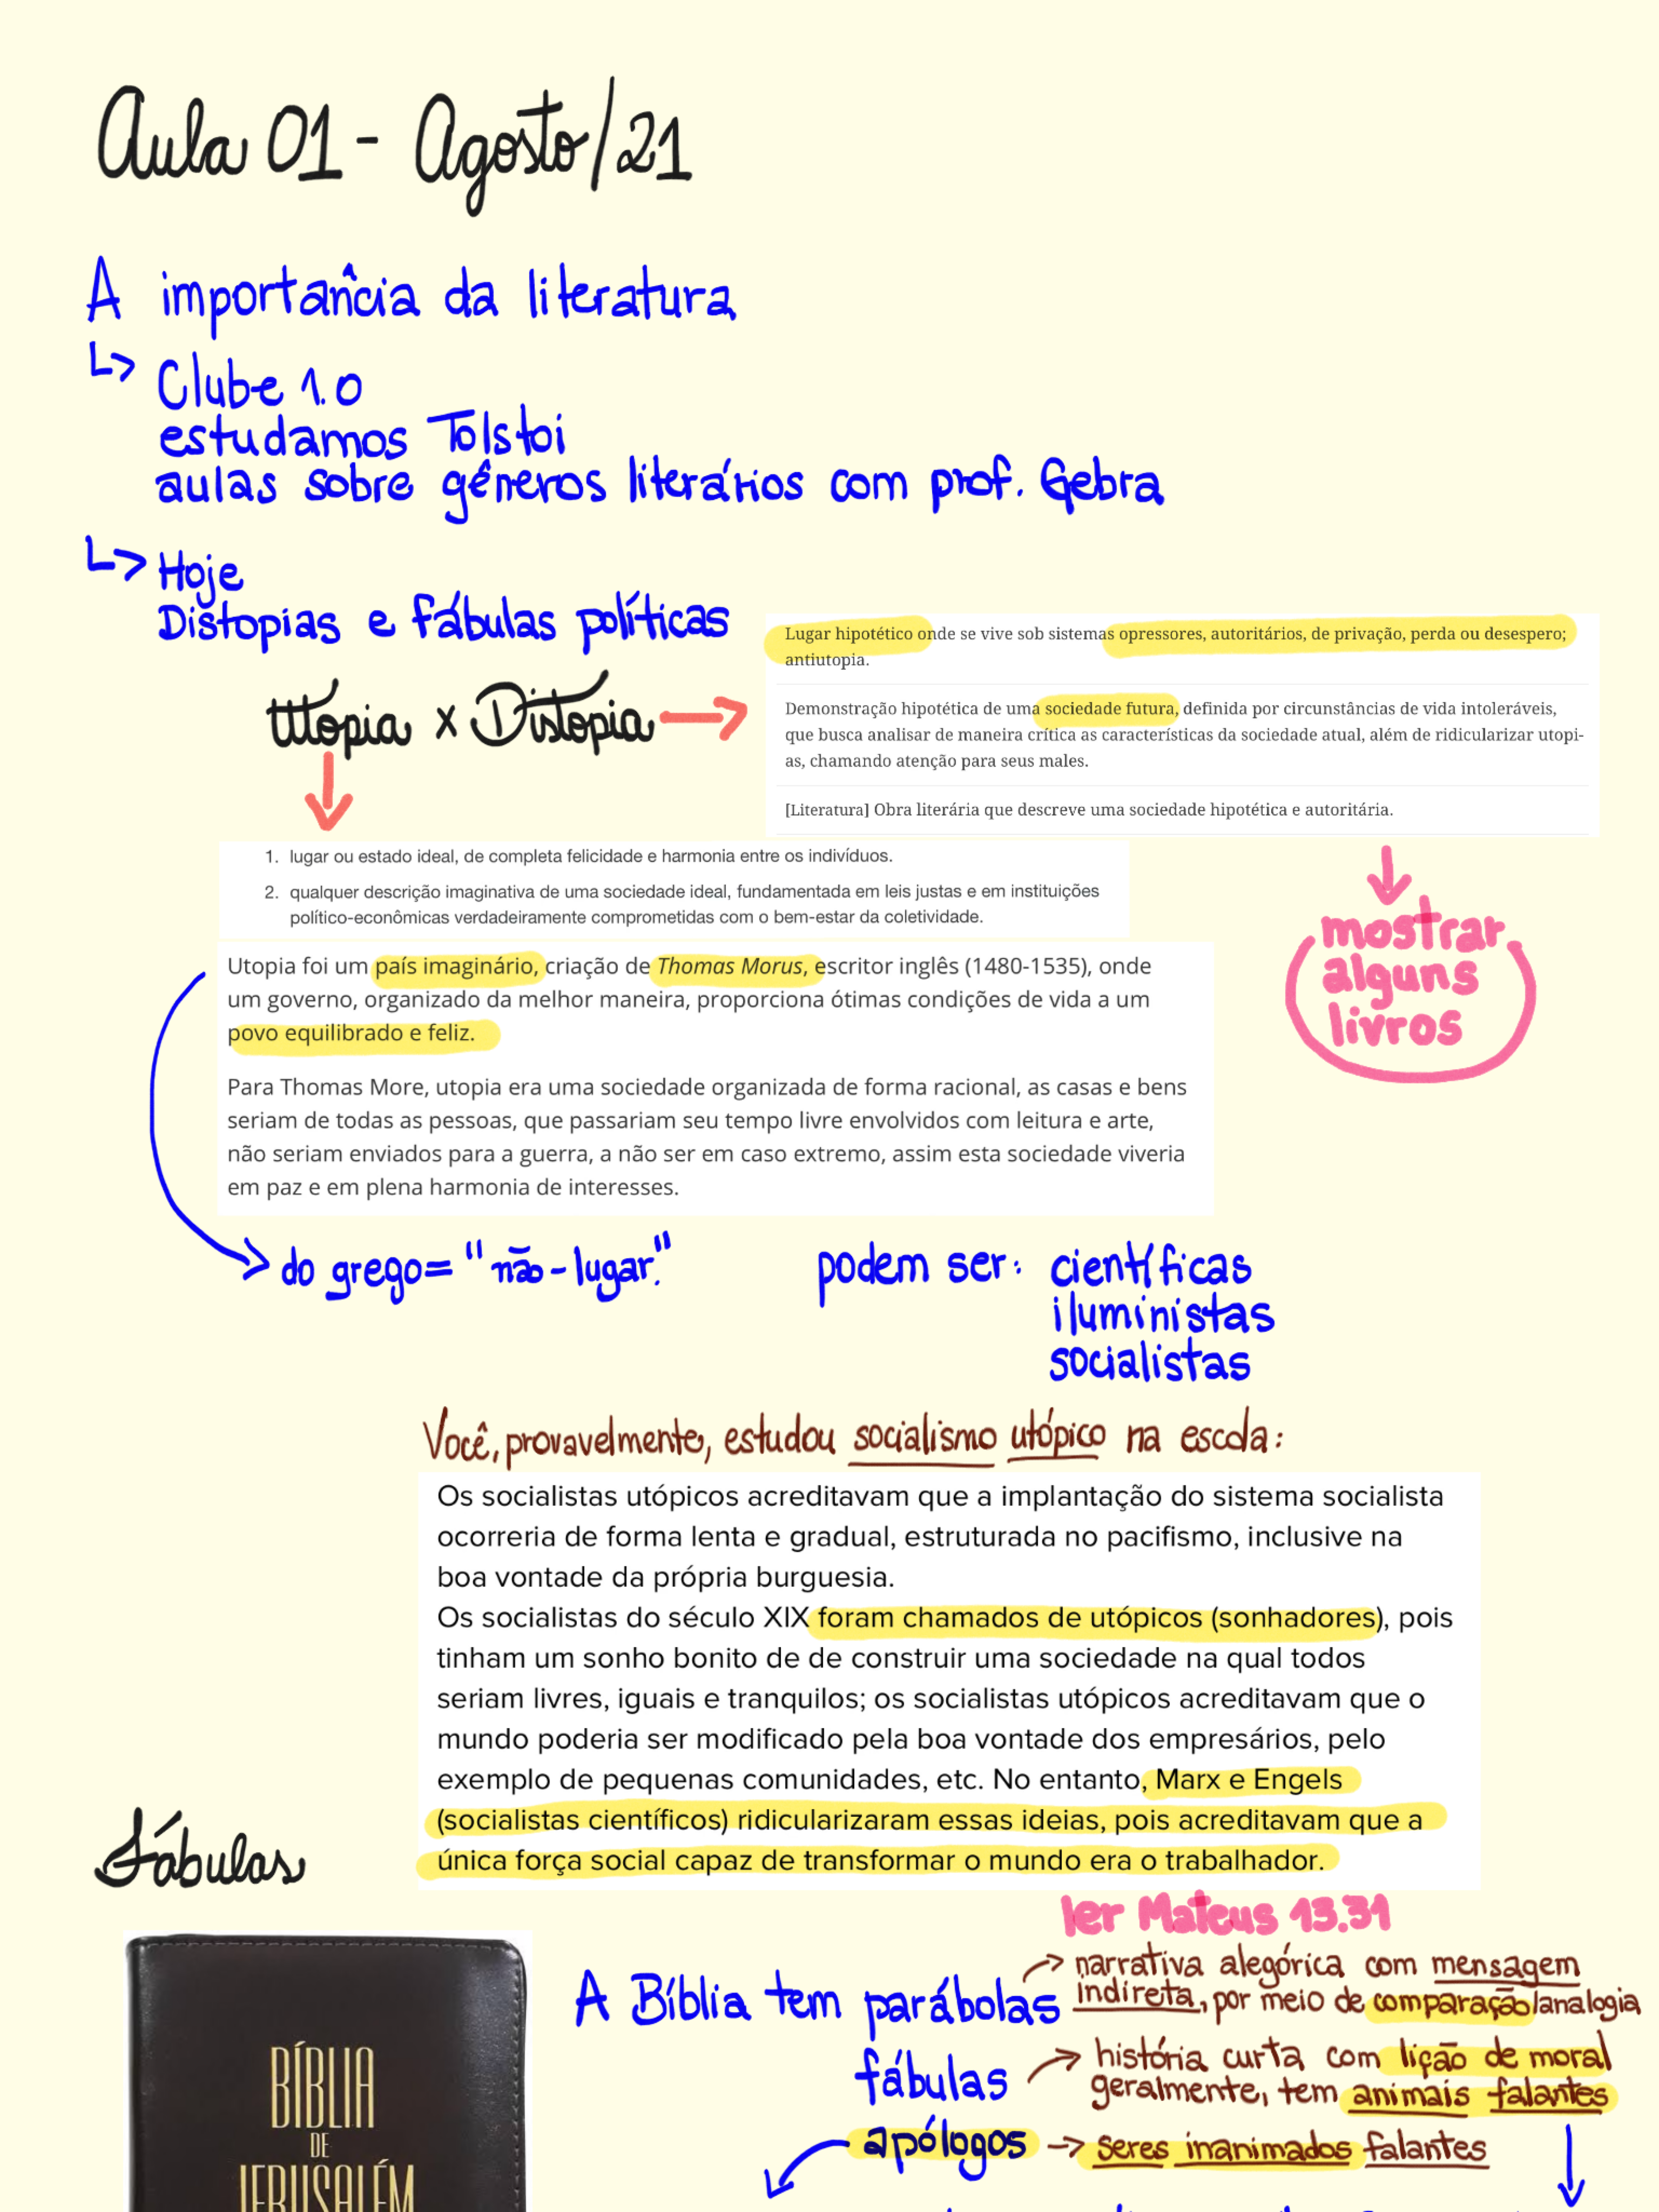 Aula 01 - Agosto/21
A importância da literatura
↳ Clube 1.0
estudamos Tolstoi
aulas sobre gêneros literários com prof. Gebra
↳ Hoje
Distopias e fábulas políticas
Utopia x Distopia →
Lugar hipotético onde se vive sob sistemas opressores, autoritários, de privação, perda ou desespero;
antiutopia.
Demonstração hipotética de uma sociedade futura, definida por circunstâncias de vida intoleráveis,
que busca analisar de maneira crítica as características da sociedade atual, além de ridicularizar utopi-
as, chamando atenção para seus males.
[Literatura] Obra literária que descreve uma sociedade hipotética e autoritária.
mostrar
alguns
livros
1. lugar ou estado ideal, de completa felicidade e harmonia entre os indivíduos.
2. qualquer descrição imaginativa de uma sociedade ideal, fundamentada em leis justas e em instituições
político-econômicas verdadeiramente comprometidas com o bem-estar da coletividade.
Utopia foi um país imaginário, criação de Thomas Morus, escritor inglês (1480-1535), onde
um governo, organizado da melhor maneira, proporciona ótimas condições de vida a um
povo equilibrado e feliz.
Para Thomas More, utopia era uma sociedade organizada de forma racional, as casas e bens
seriam de todas as pessoas, que passariam seu tempo livre envolvidos com leitura e arte,
não seriam enviados para a guerra, a não ser em caso extremo, assim esta sociedade viveria
em paz e em plena harmonia de interesses.
do grego= "não-lugar."
podem ser: científicas
iluministas
socialistas
Você, provavelmente, estudou socialismo utópico na escola:
Os socialistas utópicos acreditavam que a implantação do sistema socialista
ocorreria de forma lenta e gradual, estruturada no pacifismo, inclusive na
boa vontade da própria burguesia.
Os socialistas do século XIX foram chamados de utópicos (sonhadores), pois
tinham um sonho bonito de de construir uma sociedade na qual todos
seriam livres, iguais e tranquilos; os socialistas utópicos acreditavam que o
mundo poderia ser modificado pela boa vontade dos empresários, pelo
exemplo de pequenas comunidades, etc. No entanto, Marx e Engels
(socialistas científicos) ridicularizaram essas ideias, pois acreditavam que a
única força social capaz de transformar o mundo era o trabalhador.
Fábulas
ler Mateus 13.31
A Bíblia tem parábolas → narrativa alegórica com mensagem
indireta, por meio de comparação/analogia
fábulas → história curta com lição de moral
geralmente, tem animais falantes
apólogos → seres inanimados falantes
BÍBLIA
DE
JERUSALÉM